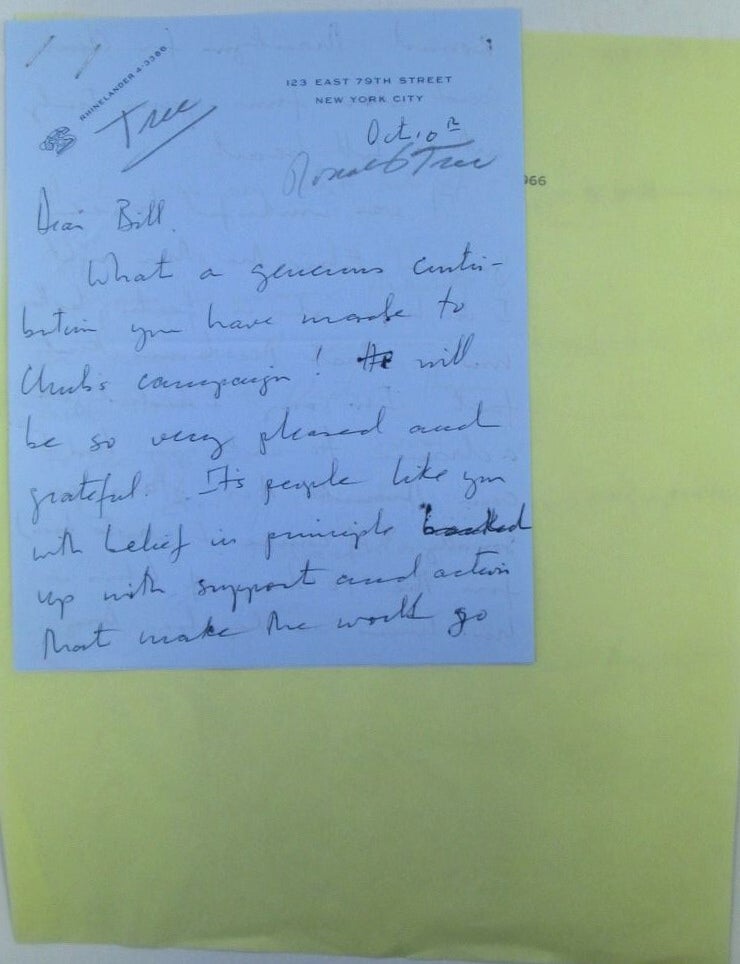 RHINELANDER 4-3386
Tree
123 EAST 79TH STREET
NEW YORK CITY
Oct. 10th
Ronald Tree
966
Dear Bill.
What a generous contri-
bution you have made to
Chub's campaign! He will
be so very pleased and
grateful. It's people like you
with belief in principle backed
up with support and action
that make the world go